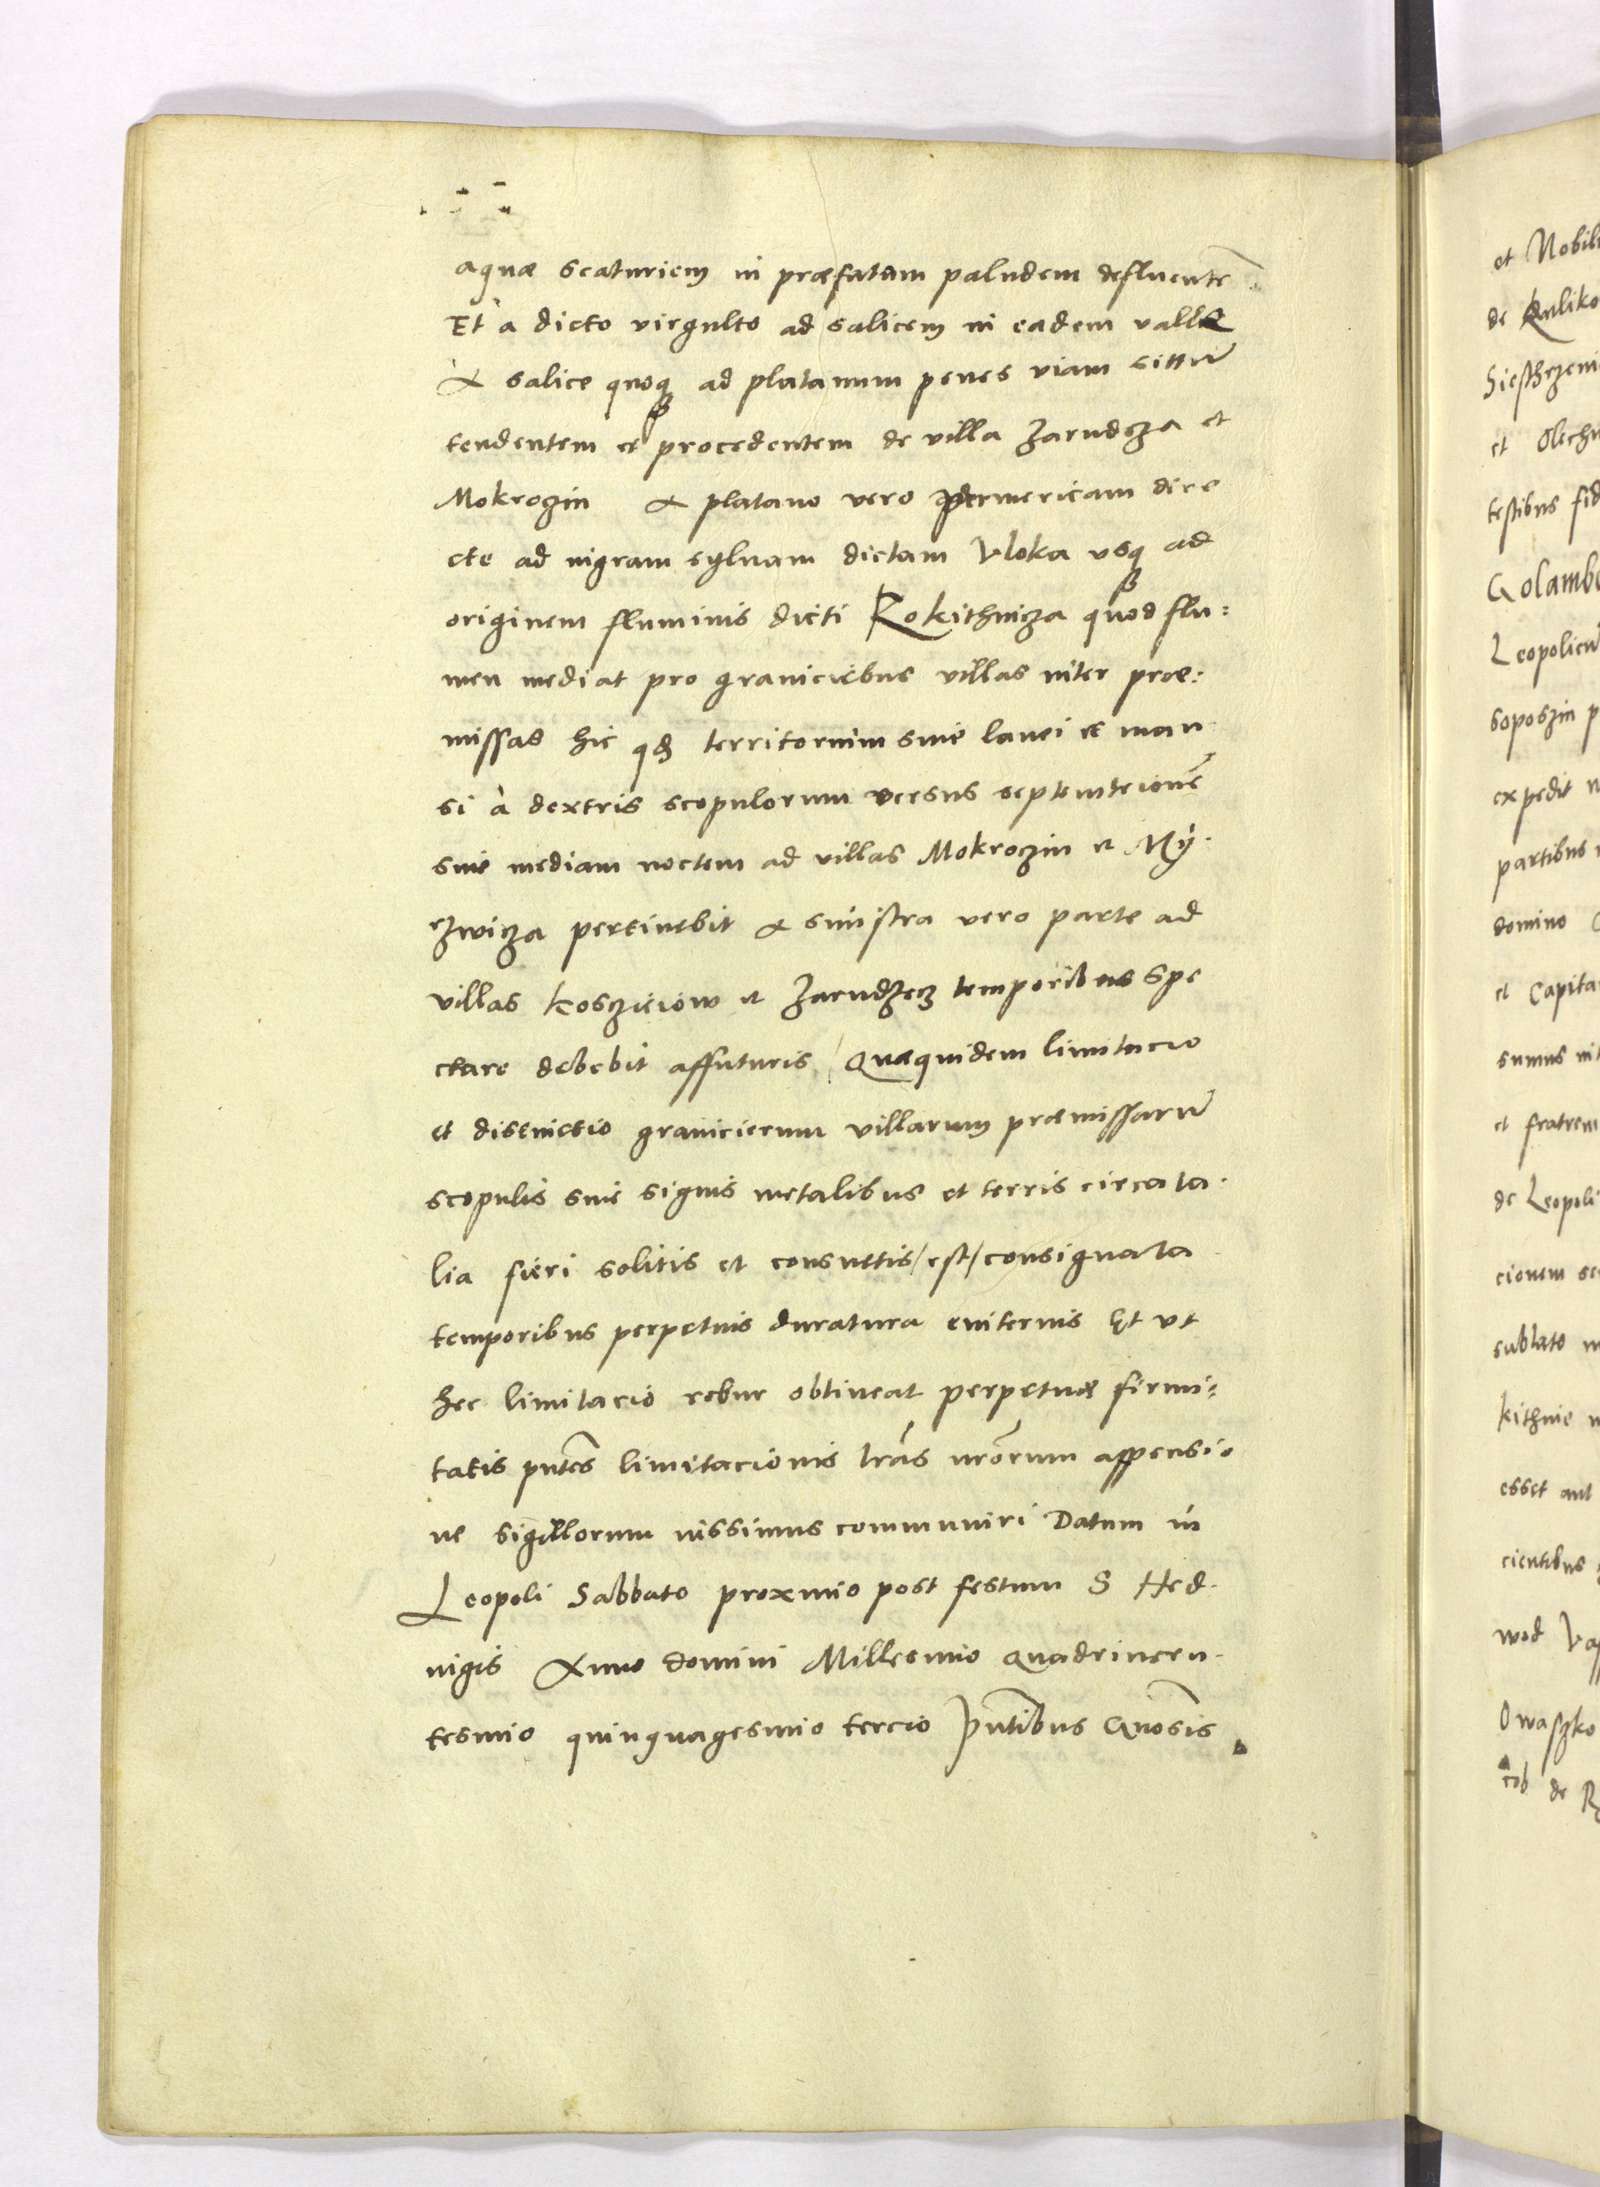 aquæ scaturiem in præfatam paludem defluentē
Et à dicto virgulto ad salicem in eadem valle
A salice quoq ad platanum penes viam sittū
tendentem et procedentem de villa Zarudcza et
Mokroczin A platano vero per mericam dire
cte ad nigram syluam dictam Vloka vsq ad
originem fluminis dicti Rokithnicza quod flu:
men mediat pro graniciebus villas inter præ:
missas hic qd territorium siue lanei et man
si à dextris scopulorum versus septemtrionē
siue mediam noctem ad villas Mokroczin et My
zwicza pertinebit A sinistra vero parte ad
villas Kosczieiow et Zarudzecz temporibus spe
ctare debebit affuturis / Quæquidem limitacio
et distinctio granicierum villarum præmissarū
scopulis siue signis metalibus et terris circa ta
lia fieri solitis et consuetis / est / consignata
temporibus perpetuis duratura euiternis Et vt
hec limitacio robur obtineat perpetuæ firmi:
tatis pntes limitacionis lras nrorum appensio
ne sigillorum iussimus communiri Datum in
Leopoli Sabbato proximo post festum S Hed
uigis Anno domini Millesimo quadrincen
tesimo quinquagesimo tercio Pntibus Gnosis
et Nobili
de Kuliko
et Olechn
testibus fid
Golambe
Leopolien
soposzin p
expedit
partibus
domino
et Capita
sumus int
et fratrem
de Leopoli
cionem se
sublato
kithnie
esset aut
cientibus
wod Vas
Owaszko
cob de R